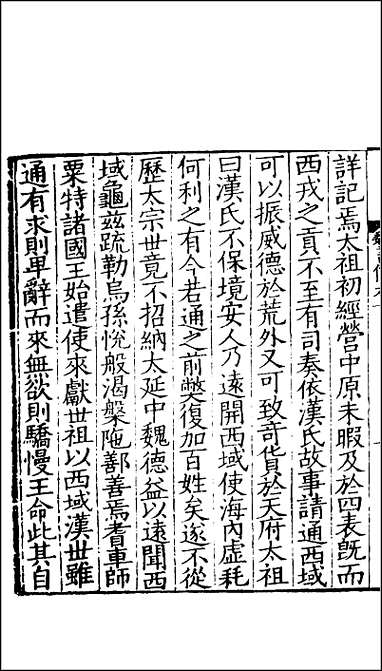 詳記焉太祖初經營中原未暇及於四表旣而
西戎之貢不至有司奏依漢氏故事請通西域
可以振威德於荒外又可致奇貨於天府太祖
曰漢氏不保境安人乃遠開西域使海內虛耗
何利之有今若通之前弊復加百姓矣遂不從
歷太宗世竟不招納太延中魏德益以遠聞西
域龜茲疏勒烏孫悅般渴槃陁鄯善焉耆車師
粟特諸國王始遣使來獻世祖以西域漢世雖
通有求則卑辭而來無欲則驕慢王命此其自